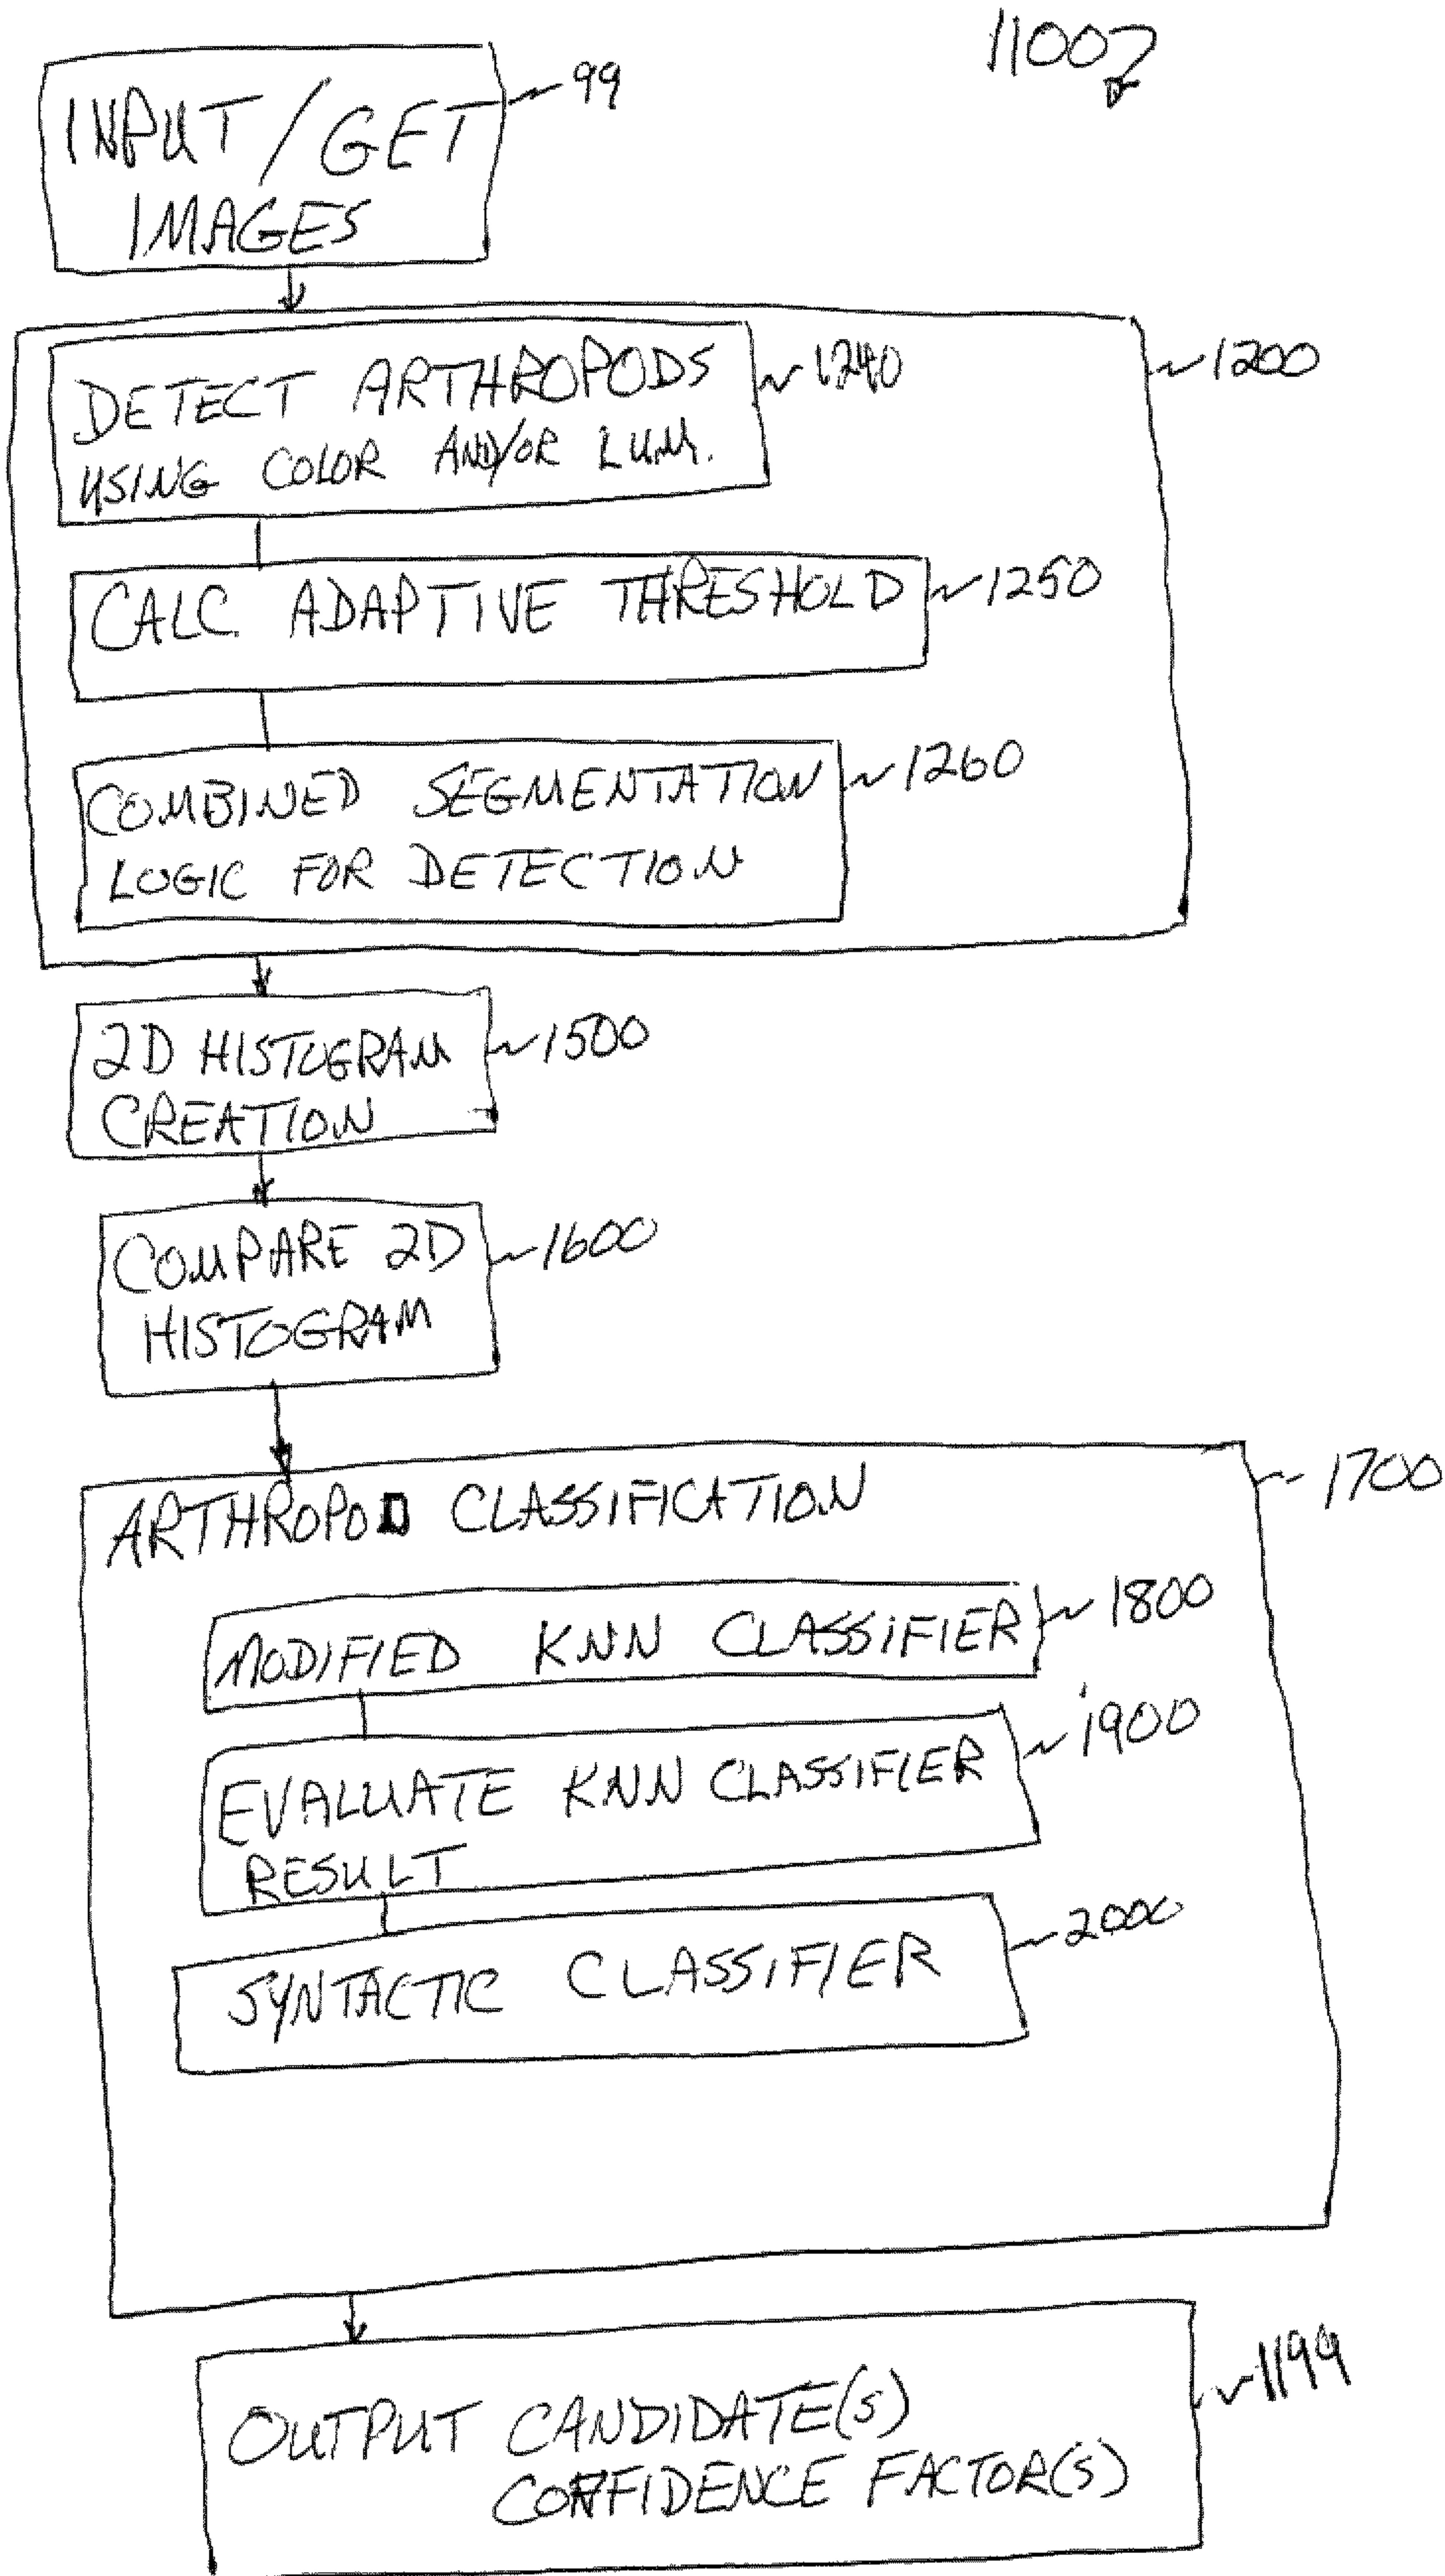 1100
INPUT/GET
IMAGES
99
DETECT ARTHROPODS
USING COLOR AND/OR LUM.
1240
1200
CALC ADAPTIVE THRESHOLD
1250
COMBINED SEGMENTATION
LOGIC FOR DETECTION
1260
2D HISTOGRAM
CREATION
1500
COMPARE 2D
HISTOGRAM
1600
ARTHROPOD CLASSIFICATION
1700
MODIFIED KNN CLASSIFIER
1800
EVALUATE KNN CLASSIFIER
RESULT
1900
SYNTACTIC CLASSIFIER
2000
OUTPUT CANDIDATE(S)
CONFIDENCE FACTOR(S)
1199